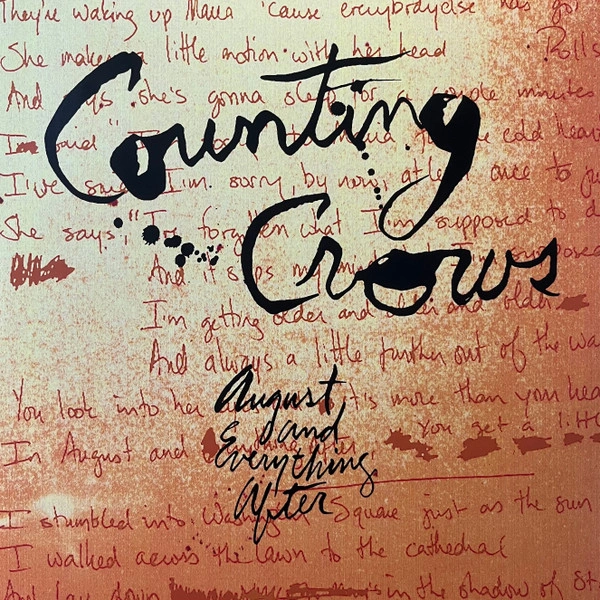 They're waking up Maria 'cause everybody else has go
She makes a little motion with her head Rolls
And she's gonna sleep for a couple minutes
Counting
I said "I'm Maria the cold hear
I've said I'm sorry, by now, at least once to ju
She says, "I've forgotten what I'm supposed to d
Crows
And it slips my mind I'm supposed
I'm getting older and older and older
And always a little further out of the wa
August
You look into her it's more than your hea
and
In August and after You get a litt
Everything
After
I stumbled into Washington Square just as the sun
I walked across the lawn to the cathedral
And lay down in the shadow of St